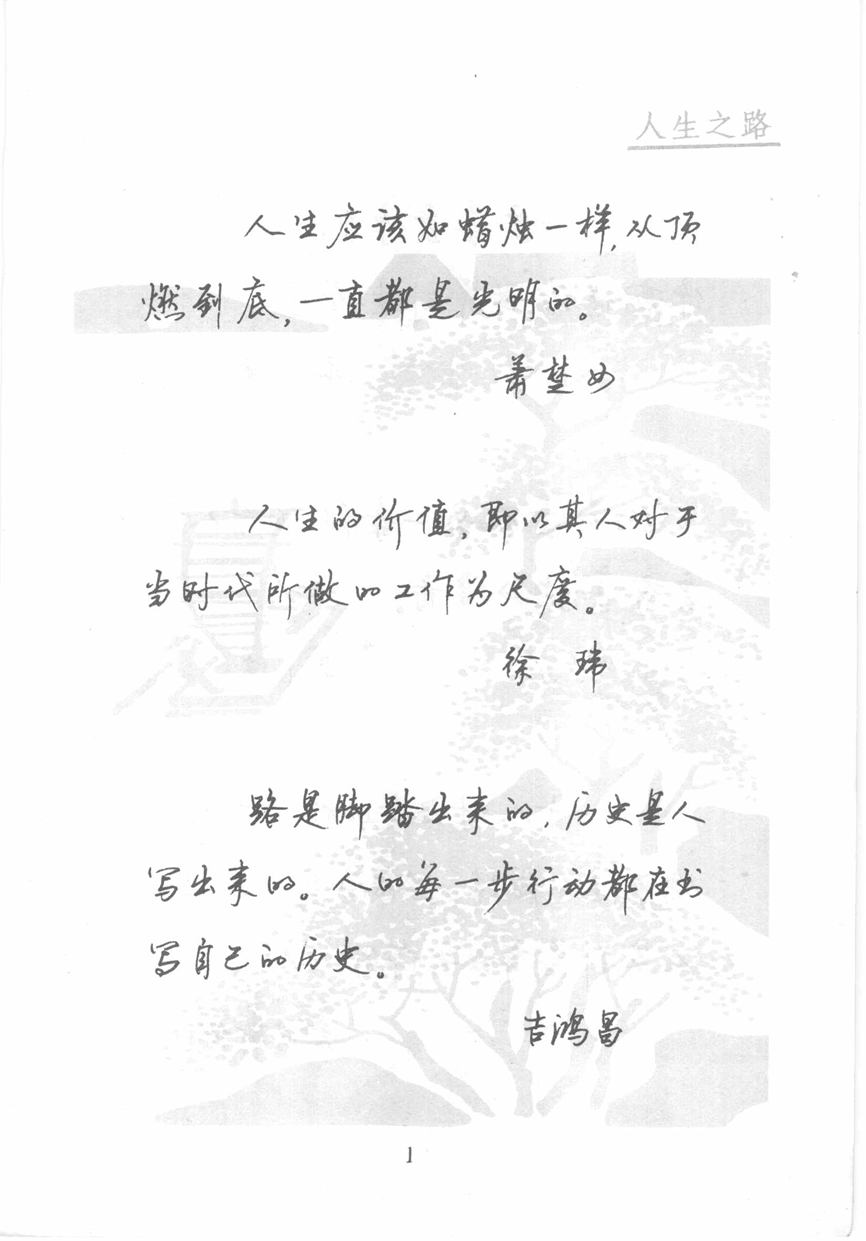 人生之路
人生应该如蜡烛一样,从顶
燃到底,一直都是光明的。
萧楚女
人生的价值,即以其人对于
当时代所做的工作为尺度。
徐 玮
路是脚踏出来的,历史是人
写出来的。人的每一步行动都在书
写自己的历史。
吉鸿昌
1